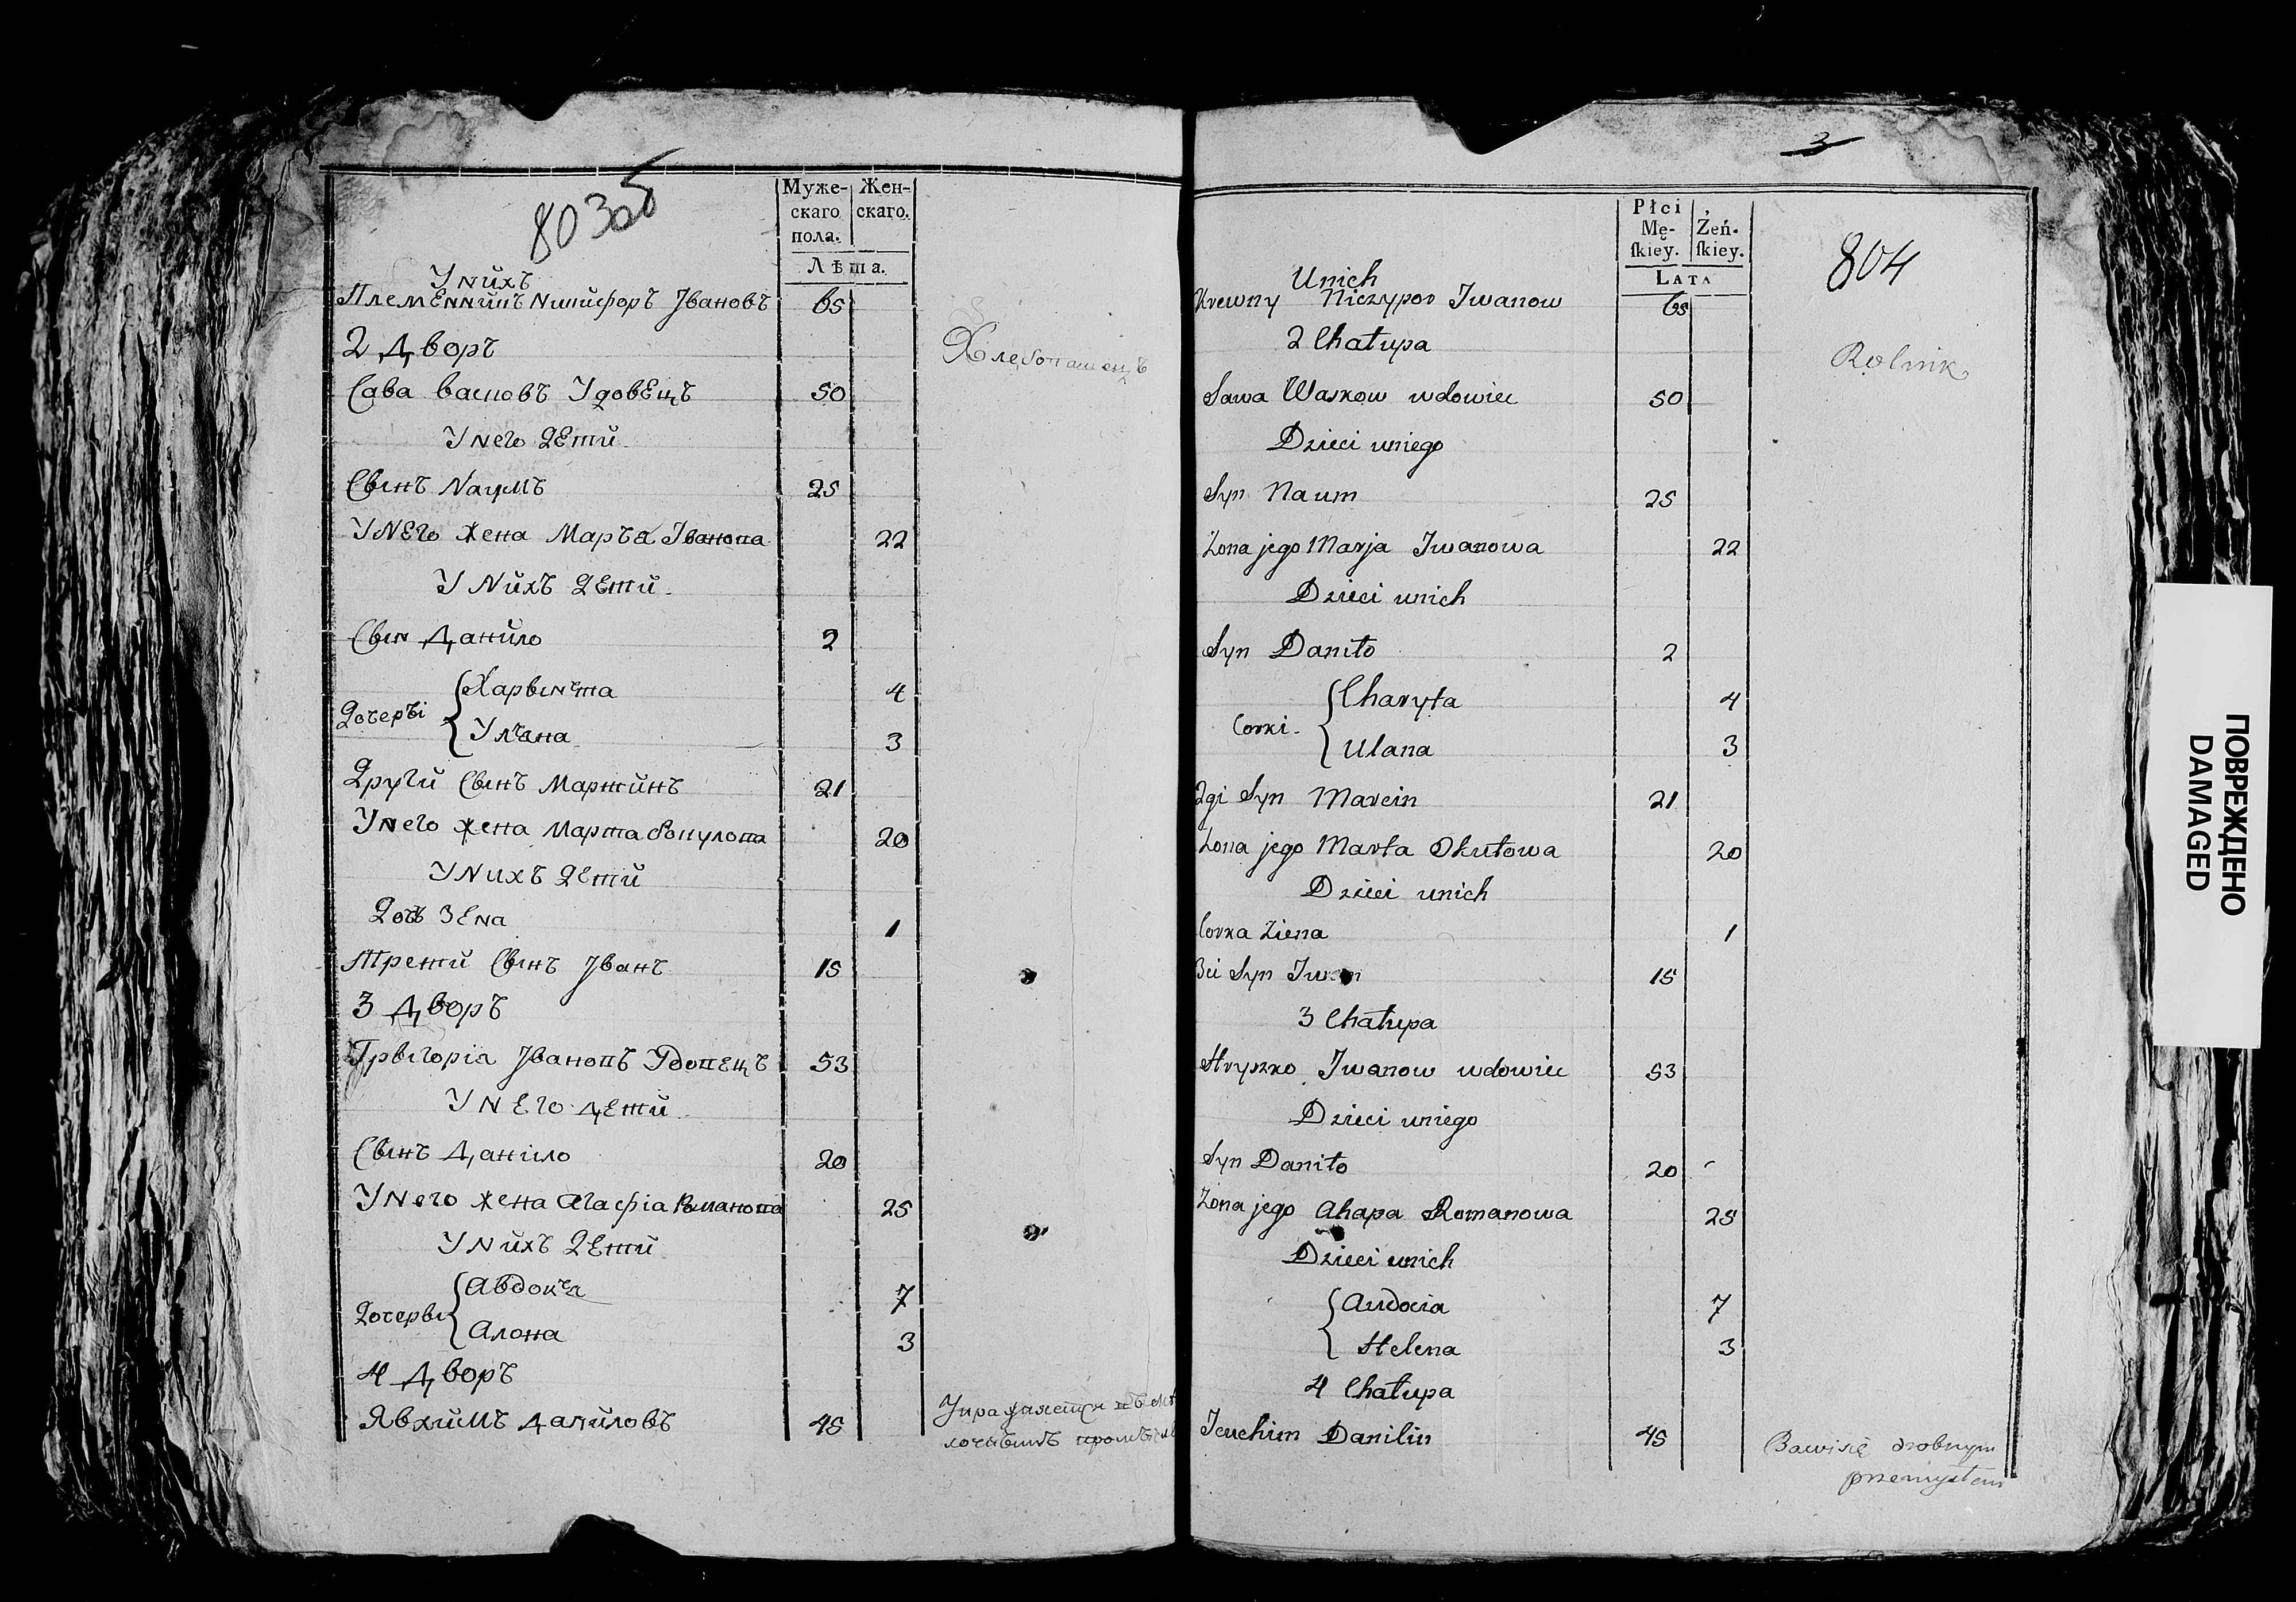 803об
Муже-
скаго
пола.
Жен-
скаго.
Лѣта.
У нихъ
Племенникъ Никифоръ Івановъ 65
2 Дворъ
Хлебопашецъ
Сава Васковъ Удовецъ 50
У него Дети
Сынъ Наумъ 25
У него жена Марья Іванова 22
У Нихъ Дети
Сын Данило 2
Дочерьі { Харытта 4
Ульяна 3
Други Сынъ Мартинъ 21
У него жена Марта 20
У Нихъ Дети
Дочь Зена 1
Трети Сынъ Іванъ 15
3 Дворъ
Грыгорія Івановъ Удовецъ 53
У Него дети
Сынъ Данило 20
У него жена Агафія Романова 25
У Нихъ Дети
Дочеры { Авдокья 7
Алона 3
4 Дворъ
Явхимъ Даниловъ 45
Упражняется
3
804
Płci
Mę-
ſkiey.
Żeń-
ſkiey.
LATA
Unich
Krewny Niczypor Iwanow 65
2 Chałupa
Rolnik
Sawa Waskow wdowiec 50
Dzieci uniego
Syn Naum 25
Zona jego Marja Iwanowa 22
Dzieci unich
Syn Daniło 2
Corki { Charyta 4
Ulana 3
2gi Syn Marcin 21
Zona jego Marta Okułowa 20
Dzieci unich
Corka Ziena 1
3ci Syn Iwan 15
3 Chałupa
Hryszko Iwanow wdowiec 53
Dzieci uniego
Syn Daniło 20
Zona jego Ahapa Romanowa 25
Dzieci unich
{ Audocia 7
Helena 3
4 Chałupa
Jeuchim Danilin 45
Bawi się drobnym
przemysłem
ПОВРЕЖДЕНО
DAMAGED